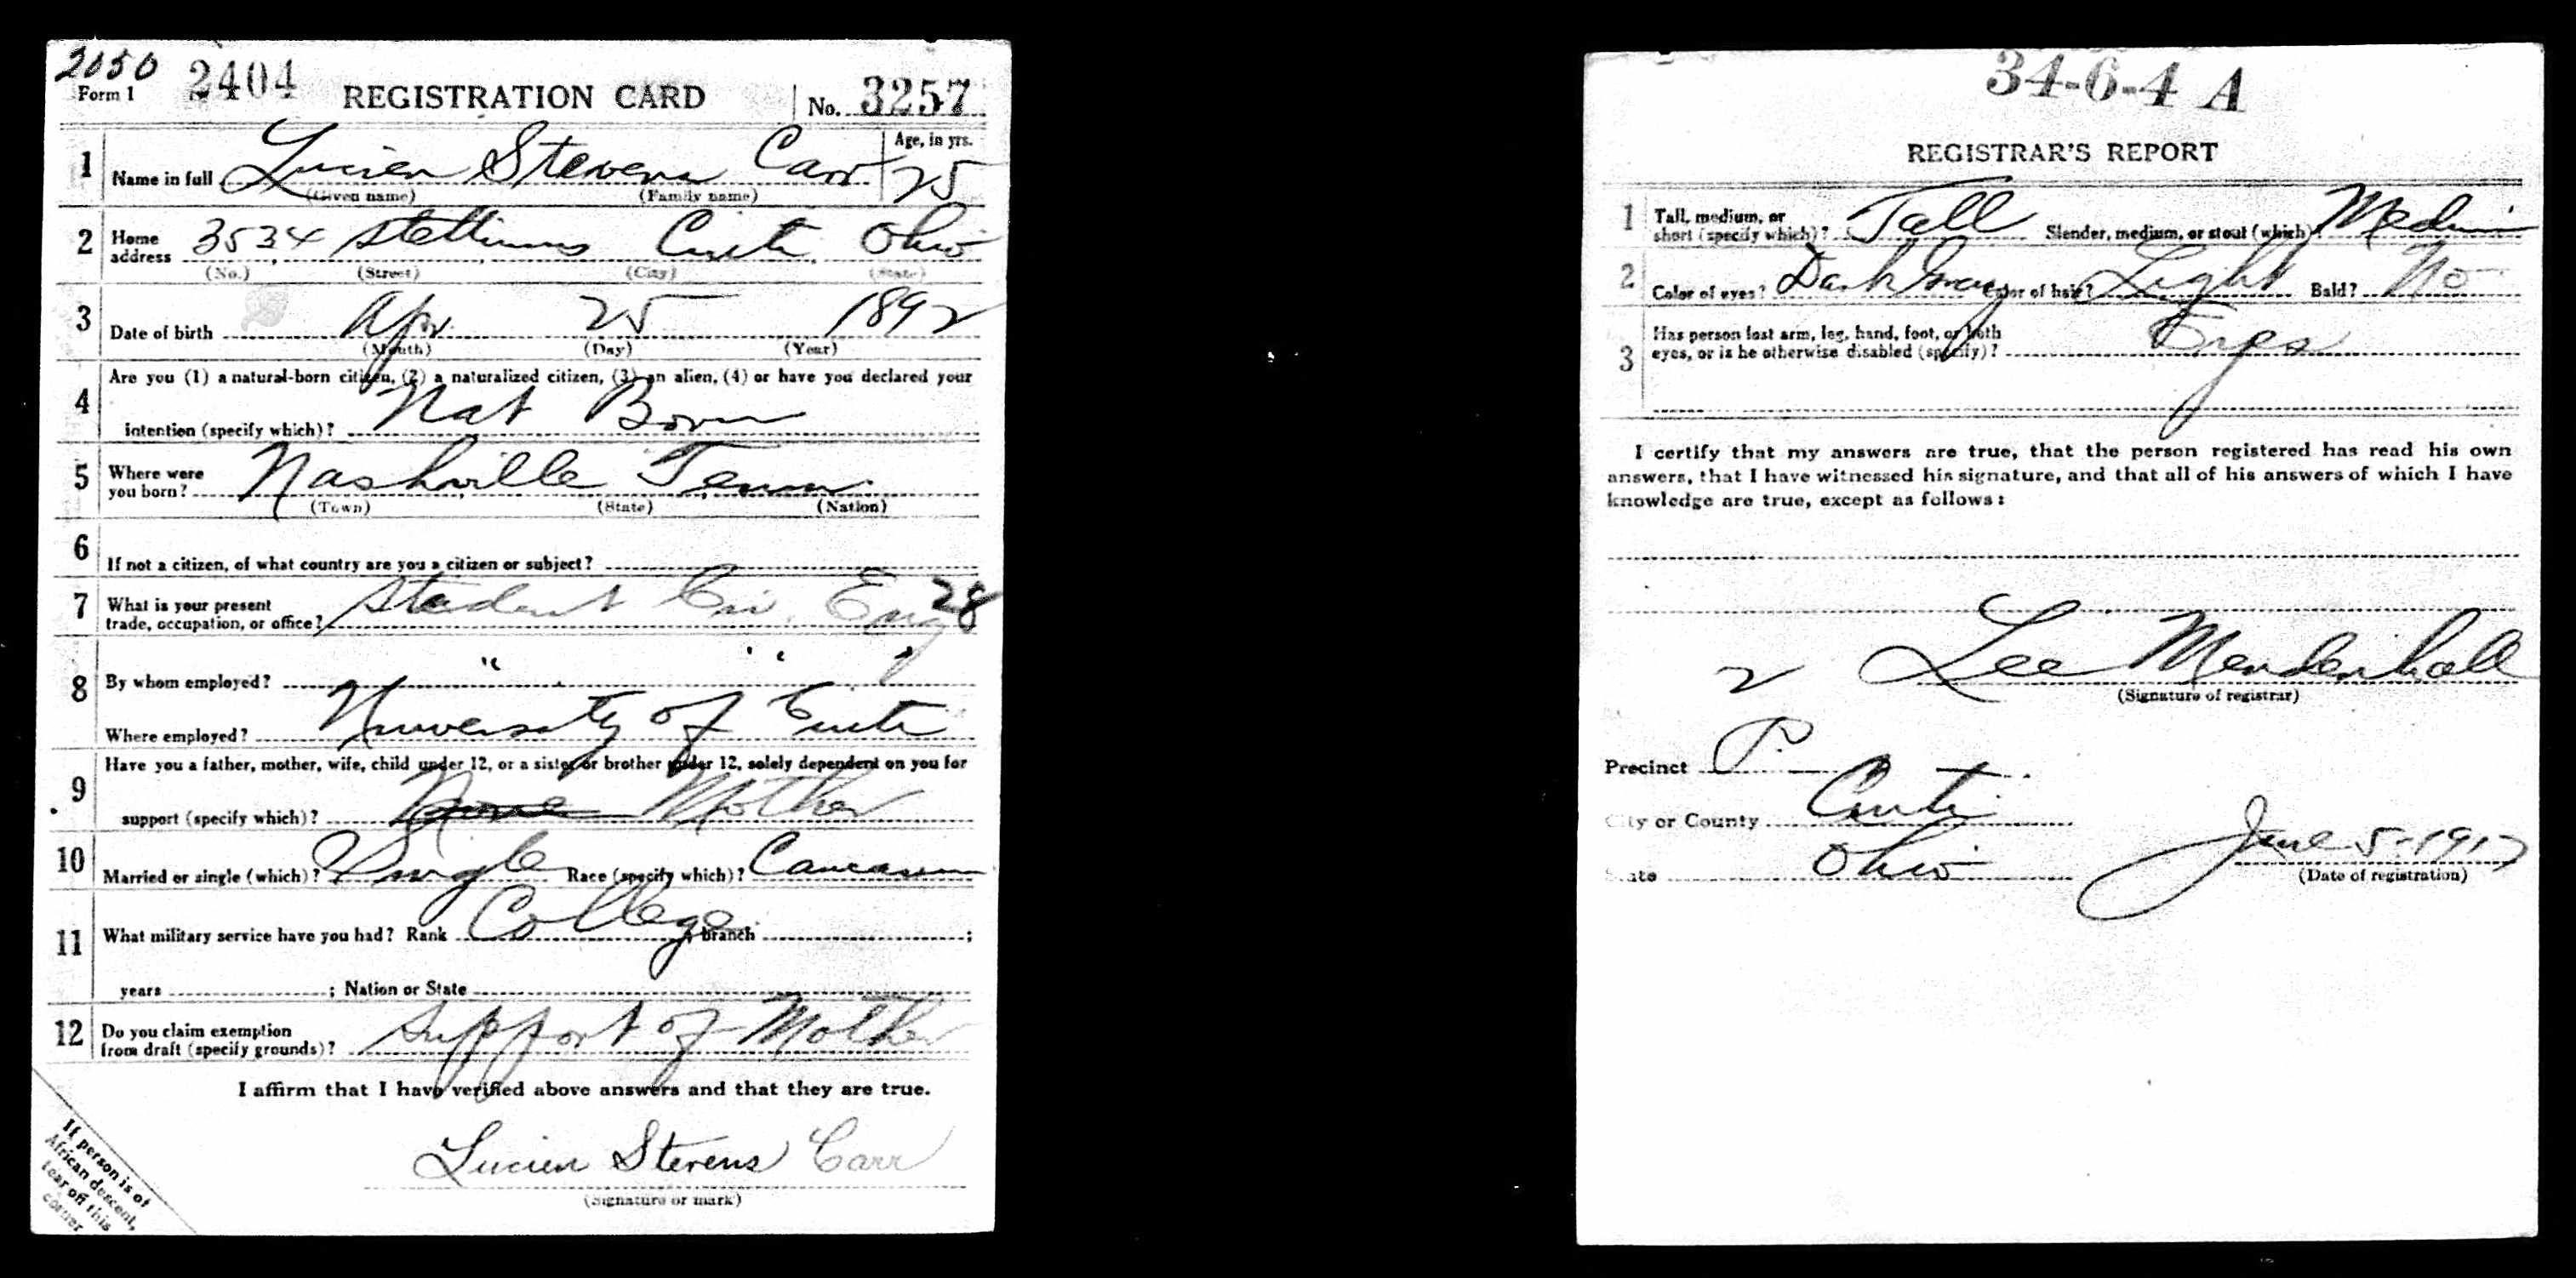 2050 2404 REGISTRATION CARD No. 3257
Form 1
1 Name in full Lucien Stevens Carr Age, in yrs. 25
(Given name) (Family name)
2 Home address 3534 Stettinius Cinti. Ohio
(No.) (Street) (City) (State)
3 Date of birth Apr. 25 1892
(Month) (Day) (Year)
4 Are you (1) a natural-born citizen, (2) a naturalized citizen, (3) an alien, (4) or have you declared your
intention (specify which)? Nat Born
5 Where were you born? Nashville Tenn.
(Town) (State) (Nation)
6 If not a citizen, of what country are you a citizen or subject?
7 What is your present trade, occupation, or office? Student Civ. Eng 28
8 By whom employed? " " "
Where employed? University of Cinti
9 Have you a father, mother, wife, child under 12, or a sister or brother under 12, solely dependent on you for
support (specify which)? None Mother
10 Married or single (which)? Single Race (specify which)? Caucasian
11 What military service have you had? Rank College; branch ;
years ; Nation or State
12 Do you claim exemption from draft (specify grounds)? Support of Mother
I affirm that I have verified above answers and that they are true.
Lucien Stevens Carr
(Signature or mark)
If person is of
African descent,
tear off this
corner
34-6-4 A
REGISTRAR'S REPORT
1 Tall, medium, or short (specify which)? Tall Slender, medium, or stout (which)? Medium
2 Color of eyes? Dark Gray Color of hair? Light Bald? No
3 Has person lost arm, leg, hand, foot, or both
eyes, or is he otherwise disabled (specify)? Eyes
I certify that my answers are true, that the person registered has read his own
answers, that I have witnessed his signature, and that all of his answers of which I have
knowledge are true, except as follows:
2 Lee Mendenhall
(Signature of registrar)
Precinct P.
City or County Cinti.
State Ohio June 5-1917
(Date of registration)